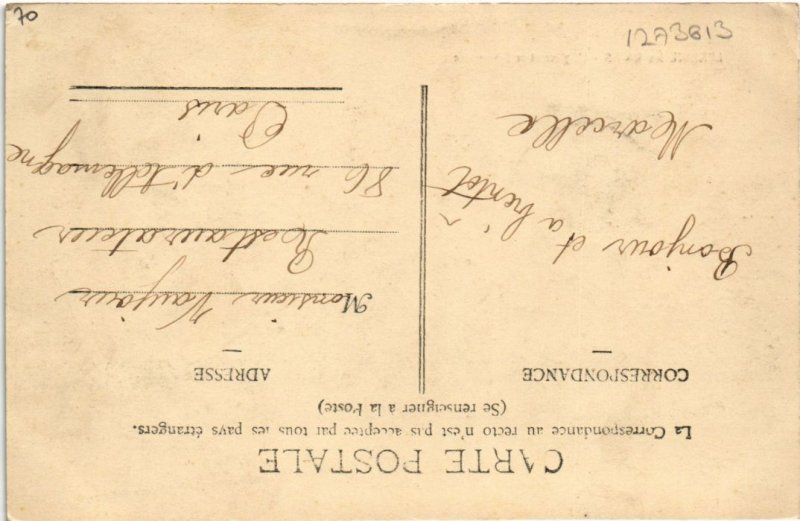 CARTE POSTALE
La Correspondance au recto n'est pas acceptée par tous les pays étrangers.
(Se renseigner à la Poste)
CORRESPONDANCE
Bonjour et a bientôt
Marcelle
ADRESSE
Monsieur Vaujour
Restaurateur
86 rue d'Allemagne
Paris
70
1273613